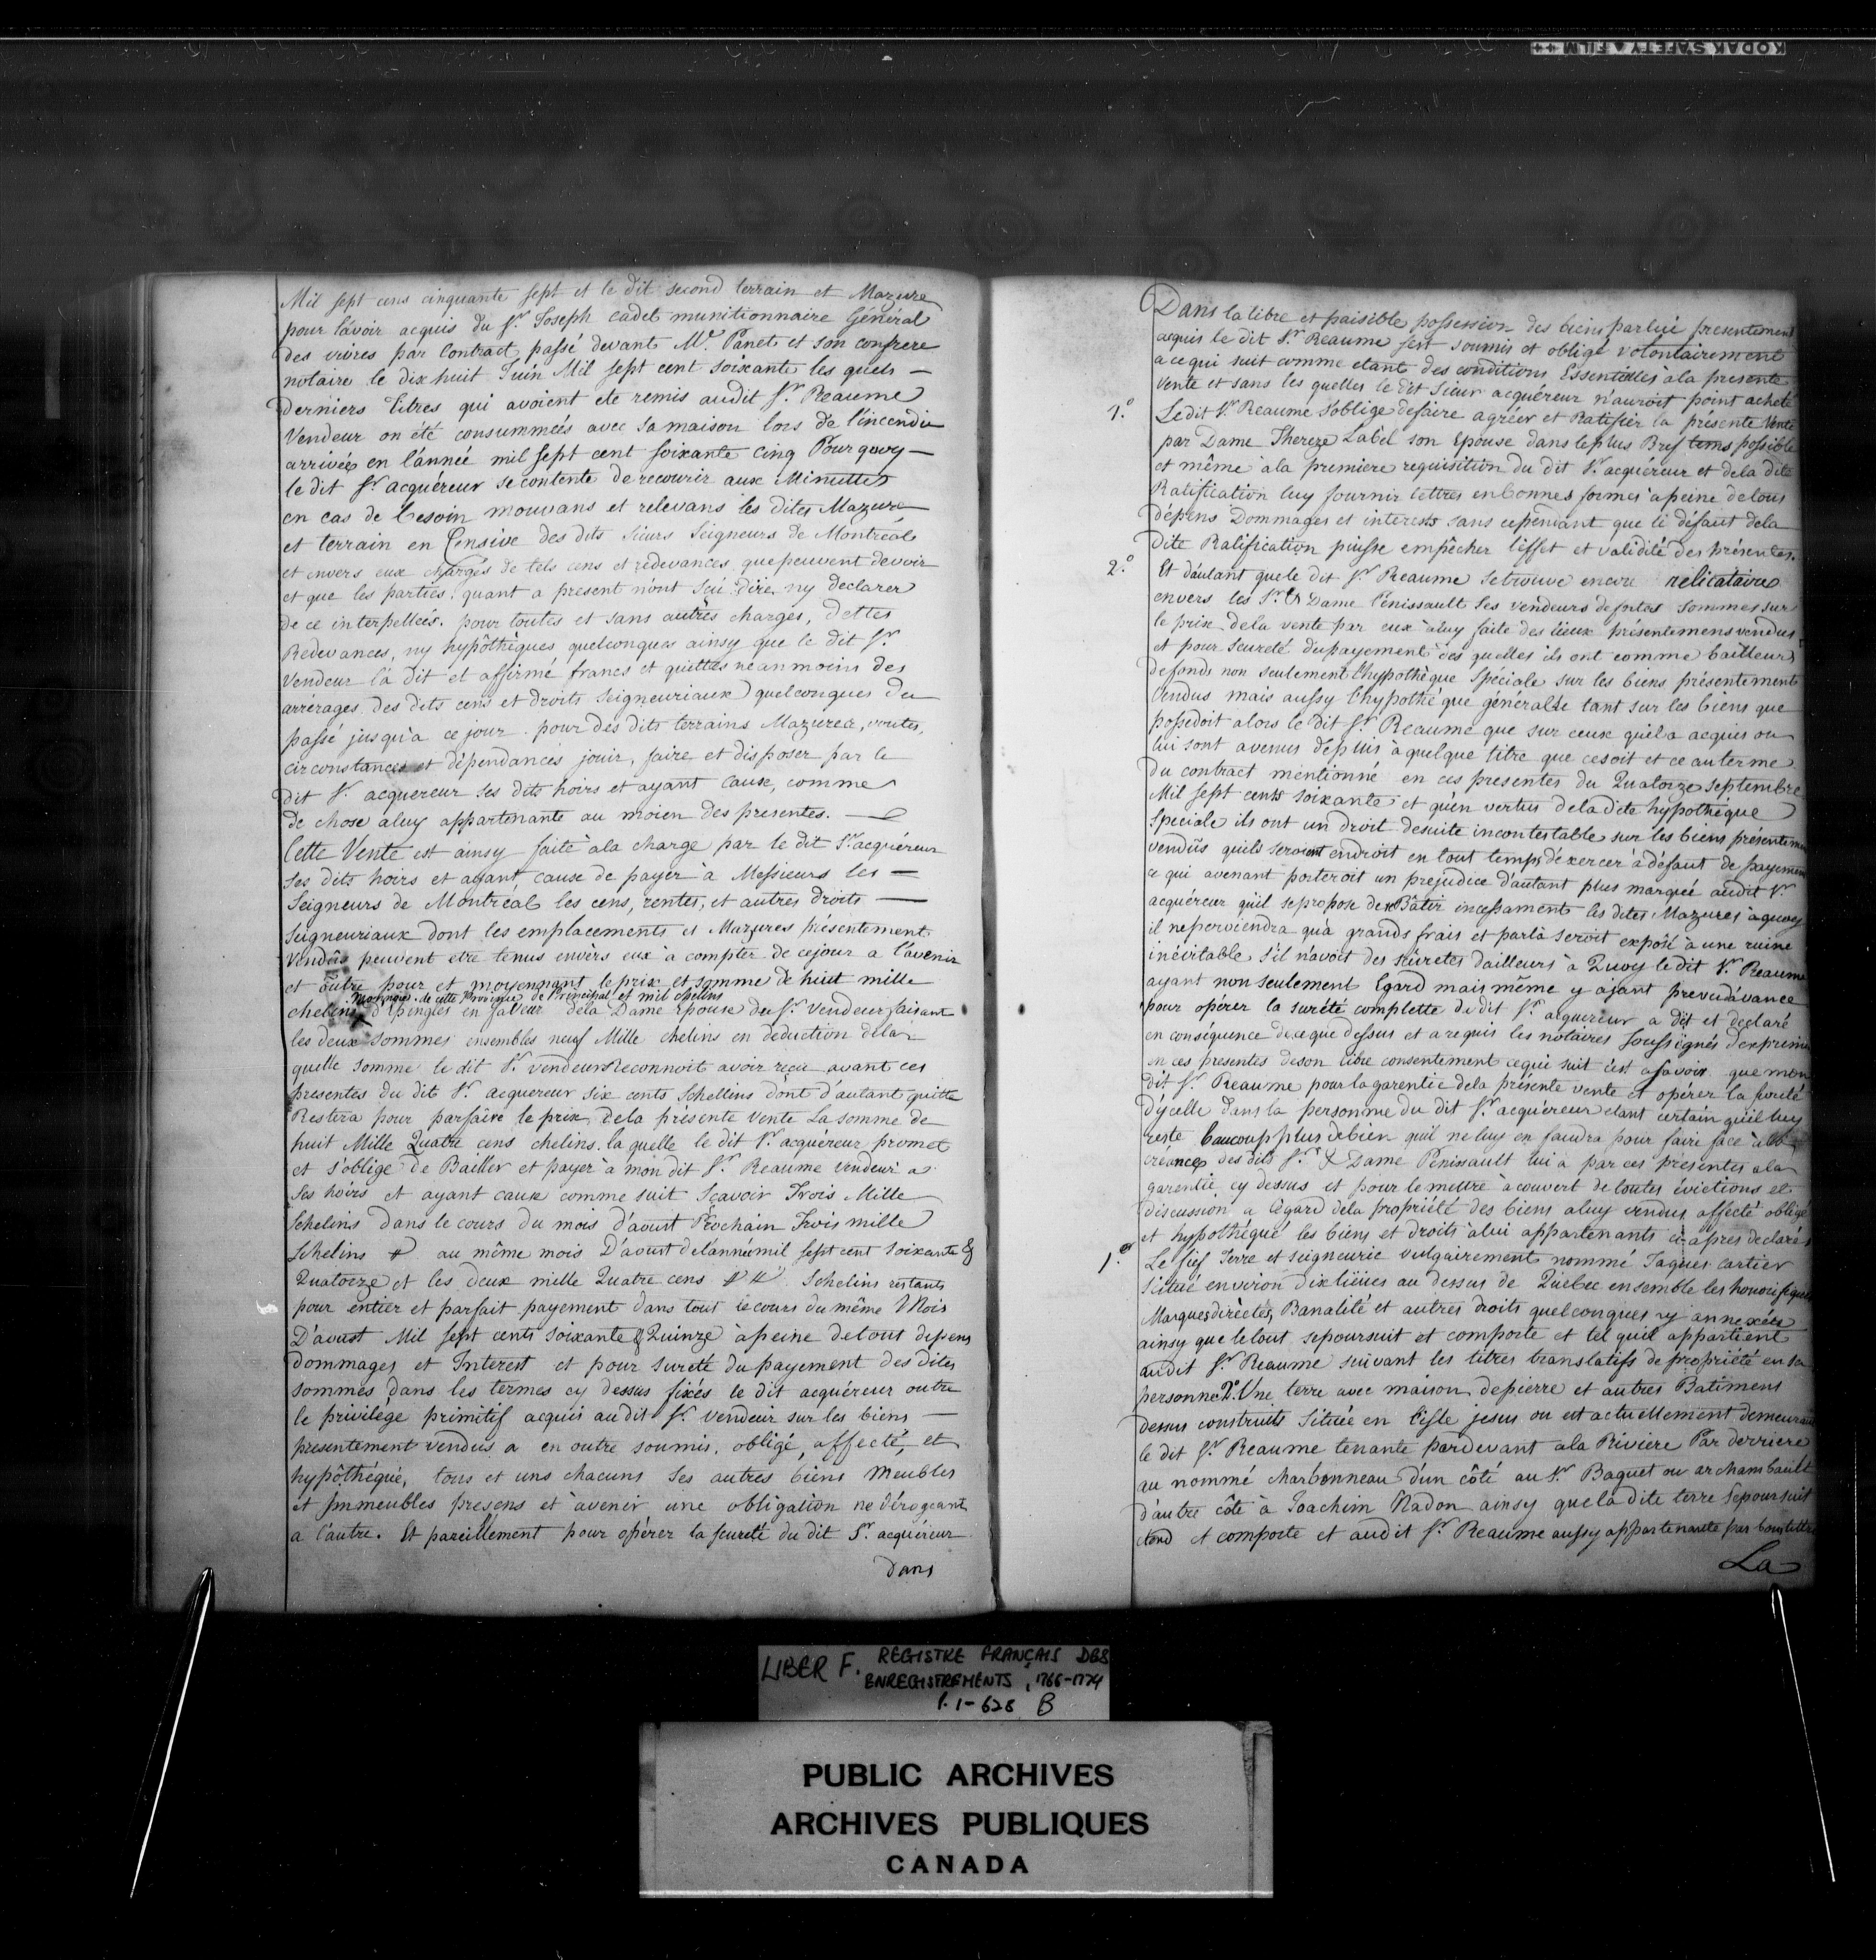 KODAK SAFETY FILM ++
Mil sept cens cinquante sept et le dit second terrain et Mazure
pour l'avoir acquis du Sr. Joseph Cadet munitionnaire Général
des vivres par Contract passé devant Me. Panet et son confrere
notaire le dix huit Juin Mil sept cent soixante les quels —
derniers titres qui avoient eté remis audit Sr. Reaume
Vendeur on été consummeés avec sa maison lors de l'incendie
arrivée en l'année mil sept cent soixante cinq Pourquoy —
le dit Sr. acquéreur se contente de recourir aux Minuttes
en cas de besoin mouvans et relevans les dites Mazure
et terrain en Censive des dits Sieurs Seigneurs de Montréal
et envers eux chargés de tels cens et redevances que peuvent devoir
et que les parties quant a present n'ont sçû dire ny declarer
de ce interpelleés. pour toutes et sans autres charges, dettes
Redevances, ny hypôthèques quelconques ainsy que le dit Sr.
Vendeur l'a dit et affirmé francs et quittes neanmoins des
arrérages des dits cens et droits Seigneuriaux quelconques du
passé jusqu'a ce jour. pour des dits terrains Mazures, voutes,
circonstances et dépendances jouir, faire et disposer par le
dit Sr. acquereur ses dits hoirs et ayant cause, comme
de chose a luy appartenante au moien des presentes. —
Cette Vente est ainsy faite à la charge par le dit Sr. acquéreur
ses dits hoirs et ayant cause de payer à Messieurs les —
Seigneurs de Montréal les cens, rentes, et autres droits —
Seigneuriaux dont les emplacements et Mazures présentement
Vendûs peuvent etre tenus envèrs eux à compter de cejour a l'avenir
et outre pour et moyennant le prix et somme de huit mille
monnoie de cette Province de Principal et mil chelins
chelins d'Epingles en faveur dela Dame Epouse du Sr. Vendeur faisant
les deux sommes ensembles neuf Mille chelins en déduction dela
quelle somme le dit Sr. vendeur Reconnoit avoir reçu avant ces
presentes du dit Sr. acquereur six cents Schellins dont d'autant quitte
Restera pour parfaire le prix dela présente Vente La somme de
huit Mille Quatre cens chelins. la quelle le dit Sr. acquéreur promet
et s'oblige de Bailler et payer à mon dit Sr. Reaume vendeur a
Ses hoirs et ayant cause comme suit Sçavoir Trois Mille
Schelins dans le cours du mois d'aoust Prochain Trois mille
Schelins au même mois D'aoust del'année mil sept cent soixante &
Quatorze et les deux mille Quatre cens Schelins restants
pour entier et parfait payement dans tout le cours du même Mois
D'aoust Mil sept cents soixante & Quinze à peine de tout depens
dommages et Interest et pour sureté du payement des dites
sommes dans les termes cy dessus fixés le dit acquéreur outre
le privilége primitif acquis audit Sr. Vendeur sur les biens —
presentement vendus a en outre soumis, obligé, affecté, et
hypôthéqué, tous et uns chacuns ses autres biens Meubles
et Immeubles presens et à venir une obligation ne dérogeant
a l'autre. Et pareillement pour opérer la seureté du dit Sr. acquéreur
Dans
Dans la libre et paisible possession des biens par lui presentement
acquis le dit Sr. Reaume s'est soumis et obligé volontairement
a ce qui suit comme etant des conditions Essentielles à la presente
Vente et sans les quelles le dit Sieur acquéreur n'auroit point acheté
1.° Le dit Sr. Reaume s'oblige de faire agréer et Ratifier la présente Vente
par Dame Thereze Label son Epouse dans le plus Bref tems possible
et même à la premiere requisition du dit Sr. acquéreur et dela dite
Ratification luy fournir lettres en bonnes formes à peine de tous
dépens Dommages et interests sans cependant que le défaut dela
dite Ratification puisse empêcher l'effet et validité des présentes.
2.° Et d'autant que le dit Sr. Reaume se trouve encore relicataire
envers les Sr. & Dame Penissault ses vendeurs de fortes sommes sur
le prix dela vente par eux à luy faite des lieux présentemens vendus
et pour seureté du payement des quelles ils ont comme bailleurs
de fonds non seulement l'hypothèque Spéciale sur les biens présentement
Vendus mais aussy l'hypothéque générale tant sur les biens que
possedoit alors le dit Sr. Reaume que sur ceux qu'il a acquis ou
lui sont avenus depuis à quelque titre que ce soit et ce au terme
du contract mentionné en ces presentes du Quatorze Septembre
Mil sept cents soixante et qu'en vertu dela dite hypothéque
Speciale ils ont un droit de suite incontestable sur les biens présentement
vendûs qu'ils seroient en droit en tout temps d'exercer à défaut de payement
ce qui avenant porteroit un prejudice d'autant plus marqué audit Sr.
acquéreur qu'il se propose de reBâtir incessament les dites Mazures à quoy
il ne perviendra qu'a grands frais et par là seroit exposé à une ruine
inévitable s'il n'avoit des suretés d'ailleurs à Quoy le dit Sr. Reaume
ayant non seulement Egard mais même y ayant prevu d'avance
pour opérer la sureté complette du dit Sr. acquereur a dit et declaré
en conséquence de ce que dessus et a requis les notaires soussignés d'exprimer
en ces presentes de son libre consentement ce qui suit c'est asavoir que mon
dit Sr. Reaume pour la garentie dela présente vente et opérer la sureté
d'ycelle dans la personne du dit Sr. acquéreur etant certain qu'il luy
reste beaucoup plus de bien qu'il ne luy en faudra pour faire face à la
créance des dits Sr. & Dame Penissault lui a par ces présentes a la
garentie cy dessus et pour le mettre à couvert de toutes évictions et
discussion a l'égard dela propriété des biens a luy vendus affecté obligé
et hypothéqué les biens et droits à lui appartenants ci-après declarés
1.° Le fief Terre et seigneurie vulgairement nommé Jaques cartier
Situé environ dix lieües au dessus de Québec ensemble les honorifiques
Marques directes, Banalité et autres droits quelconques y annexés
ainsy que le tout se poursuit et comporte et tel qu'il appartient
audit Sr. Reaume suivant les titres translatifs de propriété en sa
personne 2°. Une terre avec maison de pierre et autres Batimens
dessus construits Située en l'isle jesus ou est actuellement demeurant
le dit Sr. Reaume tenante par devant a la Riviere Par derriere
au nommé Charbonneau d'un côté au Sr. Baquet ou archambault
d'autre côté à Joachim Nadon ainsy que la dite terre se poursuit
etend et comporte et audit Sr. Reaume aussy appartenante par bons tittres
La
LIBER F. REGISTRE FRANÇAIS DES
ENREGISTREMENTS, 1766-1774
P. 1-628 B
PUBLIC ARCHIVES
ARCHIVES PUBLIQUES
CANADA